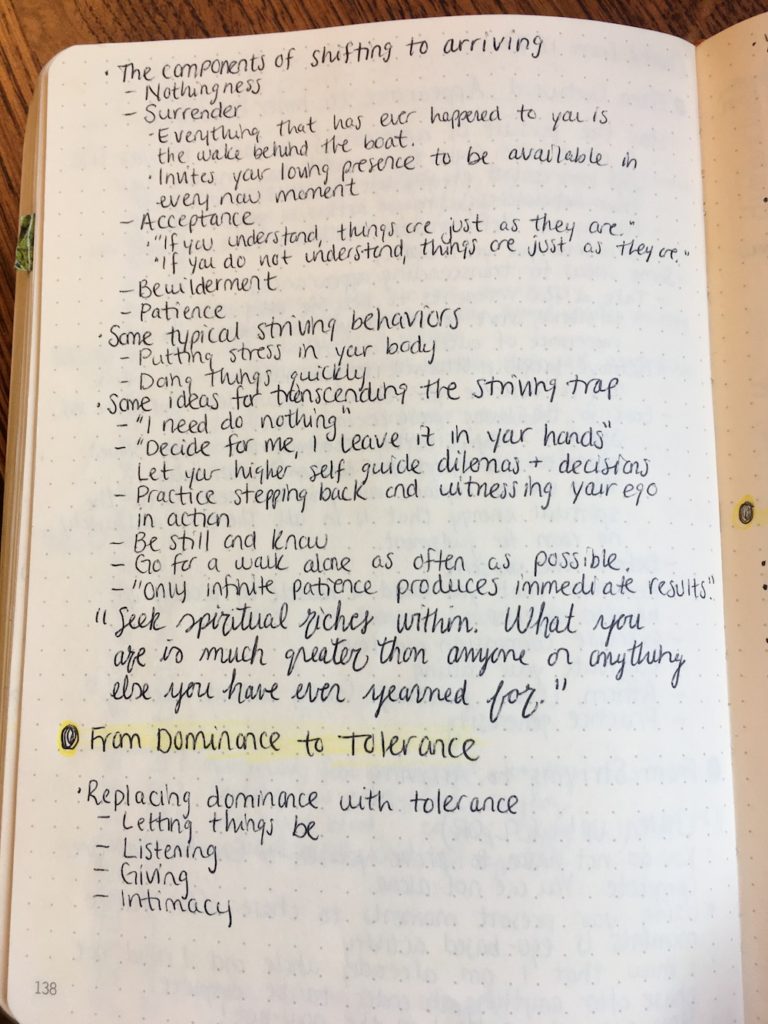 · The components of shifting to arriving
- Nothingness
- Surrender
· Everything that has ever happened to you is
the wake behind the boat.
· Invites your loving presence to be available in
every now moment
- Acceptance
· "If you understand, things are just as they are."
· "If you do not understand, things are just as they are."
- Bewilderment
- Patience
· Some typical striving behaviors
- Putting stress in your body
- Doing things quickly
· Some ideas for transcending the striving trap
- "I need do nothing"
- "Decide for me, I leave it in your hands"
Let your higher self guide dilemas + decisions
- Practice stepping back and witnessing your ego
in action
- Be still and know
- Go for a walk alone as often as possible.
- "Only infinite patience produces immediate results"
"Seek spiritual riches within. What you
are is much greater than anyone or anything
else you have ever yearned for."
From Dominance to Tolerance
· Replacing dominance with tolerance
- Letting things be
- Listening
- Giving
- Intimacy
138